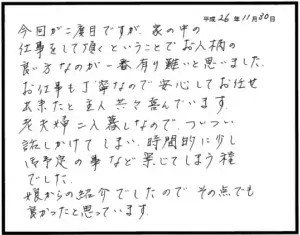 平成26年11月30日
今回が二度目ですが、家の中の
仕事をして頂くということでお人柄の
良い方なのが一番有り難いと思いました。
お仕事も丁寧なので安心してお任せ
出来たと主人共々喜んでいます。
老夫婦二人暮しなので、ついつい
話しかけてしまい、時間的に少し
予定の事など案じてしまう程
でした。
娘からの紹介でしたので その点でも
良かったと思っています。